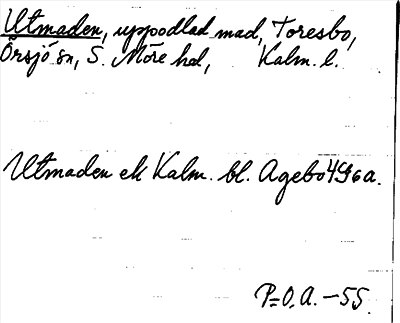 Utmaden, uppodlad mad, Toresbo,
Örsjö sn, S. Möre hd, Kalm. l.
Utmaden ek Kalm. bl. Agebo 4G6a.
P=O.A. -55.